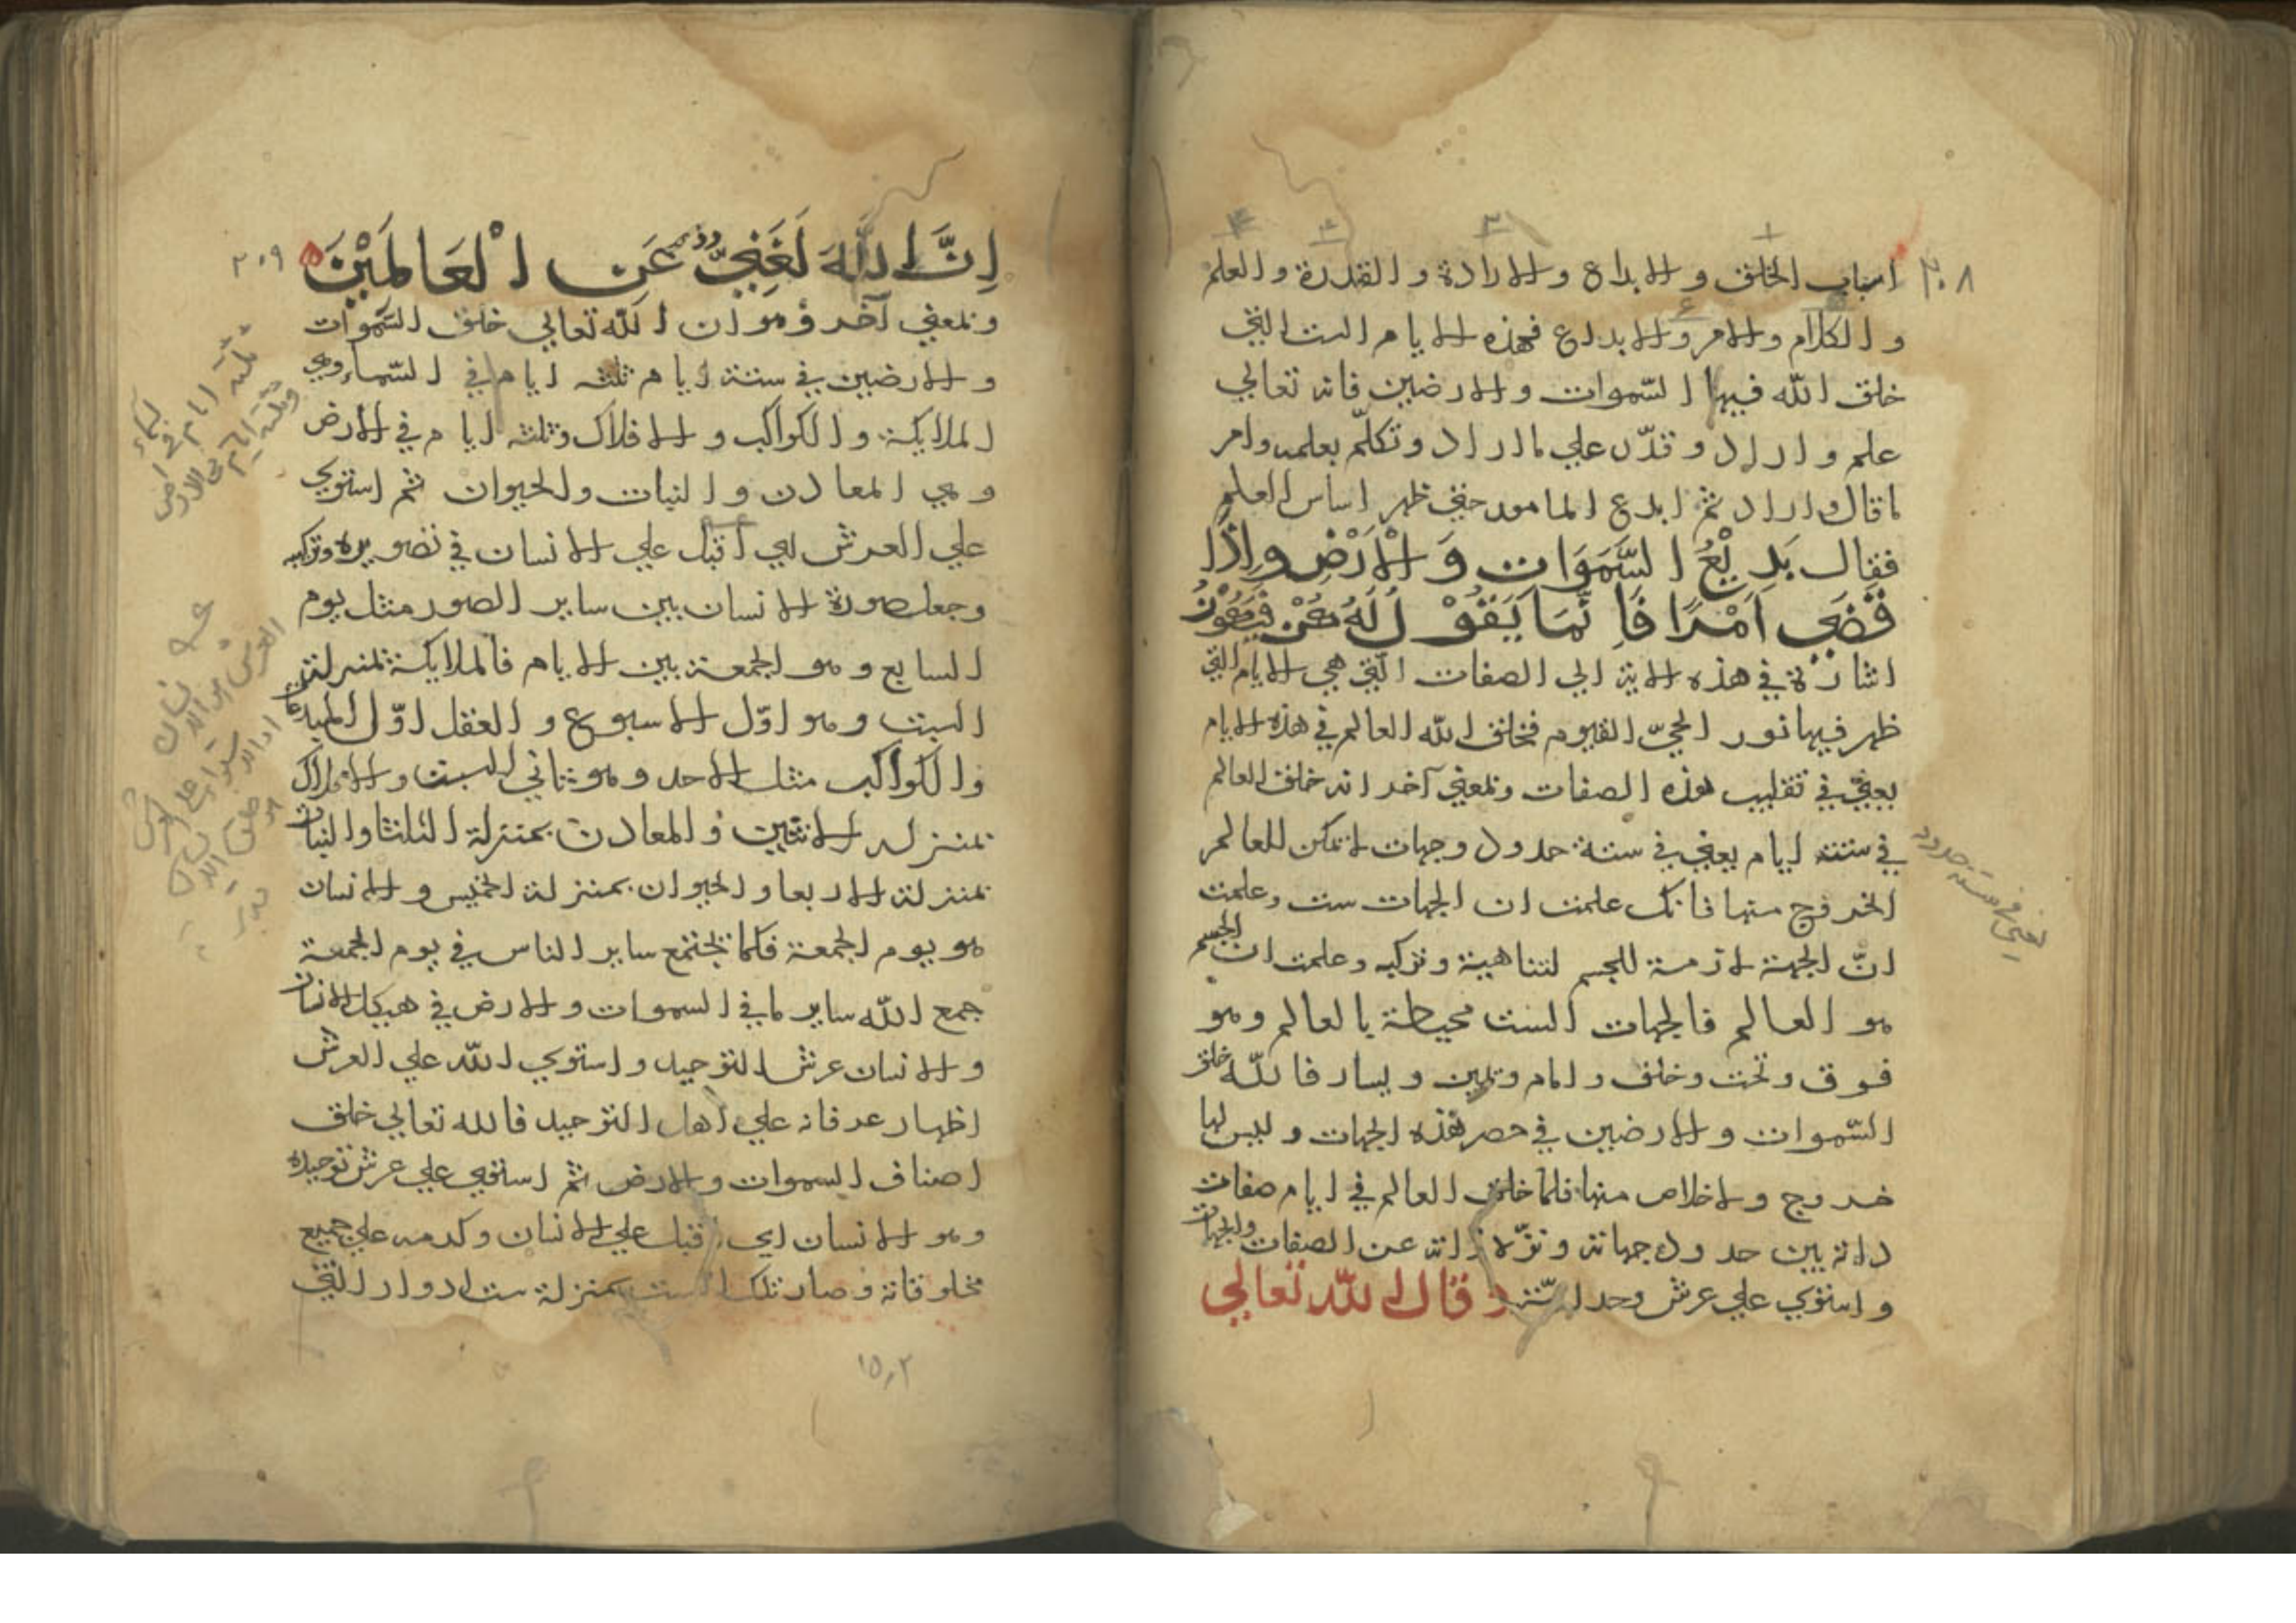 ٢٠٨
اسباب الخلق و الابداع و الارادة و القدرة و العلم
و الكلام و الامر و الابداع فهذه الايام الست التي
خلق الله فيها السّموات و الارضين فانه تعالي
علم و اراد و قدّر علي ما اراد و تكلّم بعلمه وامر
ما قال و اراد ثم ابدع المامور حتي ظهر اساس العلم
فقال بَدِيْعُ السَّمَوَات وَ الْاَرْضِ وِاِذَا
قَضَي اَمْرًا فَاِنَّمَا يَقُوْلُ لَهُ كُنْ فَيَكُوْنُ
اشارة في هذه الاية الي الصفات الّتي هي الايام التي
ظهر فيها نور الحيّ القيوم فخلق الله العالم في هذه الايام
يعني في تقليب هذه الصفات و بمعني آخر انه خلق العالم
في ستة ايام يعني في ستة حدود وجهات لا يمكن للعالم
الخروج منها فانك علمت ان الجهات ست وعلمت
انّ الجهة لازمة للجسم لتناهيه و تركبه وعلمت ان الجسم
هو العالم فالجهات الست محيطة بالعالم وهو
فوق و تحت و خلف و امام و يمين و يسار فاللّه خلق
السّموات و الارضين في حصر هذه الجهات و ليس لها
خروج و لا خلاص منها فلما خلق العالم في ايام صفات
ذاته بين حدود جهاته و نزّه ذاته عن الصفات والجهات
و استوي علي عرش وحدانيّته و قال اللّه تعالي
يعني في ستة حدود
٢٠٩
اِنَّ اللَّهَ لَغَنِيٌّ عَنِ الْعَالَمِيْنَ
و بمعني آخر و هو ان اللّه تعالي خلق السّموات
و الارضين في ستة ايام ثلثه ايام في السّماء وهي
الملايكة و الكواكب و الافلاك و ثلثه ايام في الارض
و هي المعادن و النبات و الحيوان ثم استوي
علي العرش اي اقبل علي الانسان في تصويره وتركيبه
وجعل صورة الانسان بين ساير الصور مثل يوم
السابع و هو الجمعة بين الايام فالملايكة بمنزلة
السبت و هو اوّل الاسبوع و العقل اوّل المبدعات
و الكواكب مثل الاحد و هو ثاني السبت و الافلاك
بمنزله الاثنين و المعادن بمنزلة الثلثا والنبات
بمنزلة الاربعا و الحيوان بمنزلة الخميس و الانسان
هو يوم الجمعة فكما يجتمع ساير الناس في يوم الجمعة
جمع اللّه ساير ما في السموات و الارض في هيكل الانسان
و الانسان عرش التوحيد و استوي اللّه علي العرش
اظهار عرفانه علي اهل التوحيد فالله تعالي خلق
اصناف السموات و الارض ثم استوي علي عرش توحيده
وهو الانسان اي اقبل علي الانسان وكرمه علي جميع
مخلوقاته و صار تلك الست بمنزلة ست ادوار التي
ثلثه ايام في السماء
وثلثه ايام في الارض
١٥٫٢